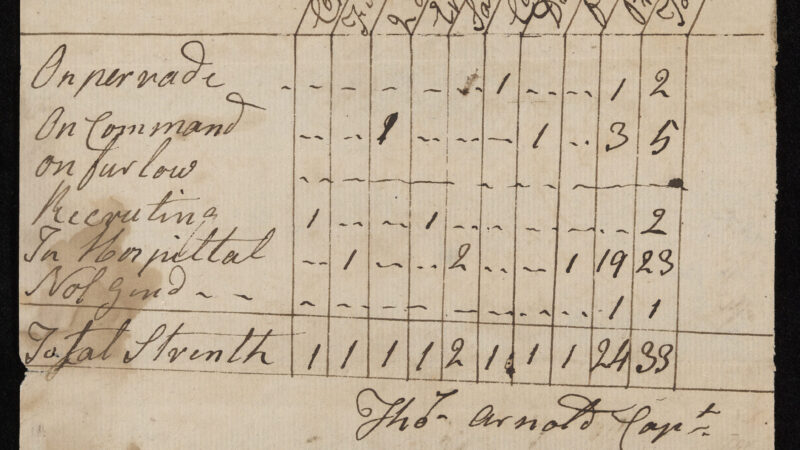 On perrade - - - - - 1 - - 1 2
On Command - - 1 - - - 1 - 3 5
on furlow - - - - - - - - - -
Recruting 1 - - 1 - - - - - 2
In Hospittal - 1 - - 2 - - 1 19 23
- - - - - - - - 1 1
Total Strenth 1 1 1 1 2 1 1 1 24 33
Tho.s Arnold Capt